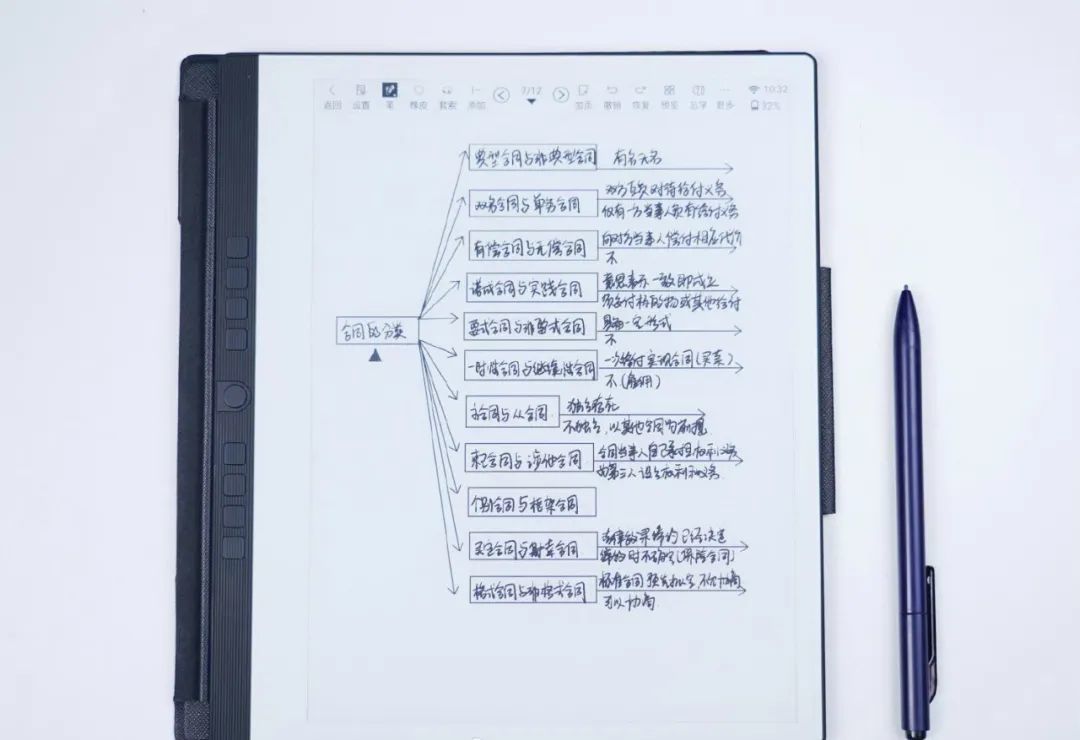 返回 设置 笔 橡皮 套索 添加 7/12 加页 撤销 恢复 预览 总学 更多 10:32 32%
典型合同与非典型合同 有名无名
双务合同与单务合同 双方互负对待给付义务
仅有一方当事人负有给付义务
有偿合同与无偿合同 向对方当事人偿付相应代价
不
诺成合同与实践合同 意思表示一致即成立
须交付标的物或其他给付
要式合同与非要式合同 一定形式
不
合同的分类
一时性合同与继续性合同 一次给付实现合同(买卖)
不(雇用)
主合同与从合同 独立存在
不独立,以其他合同为前提
束己合同与涉他合同 合同当事人自己承担权利义务
为第三人设立权利和义务
预约合同与框架合同
实定合同与射幸合同 法律效果缔约已经决定
缔约时不确定(保险合同)
格式合同与非格式合同 标准合同 预先拟定,不能协商
可以协商